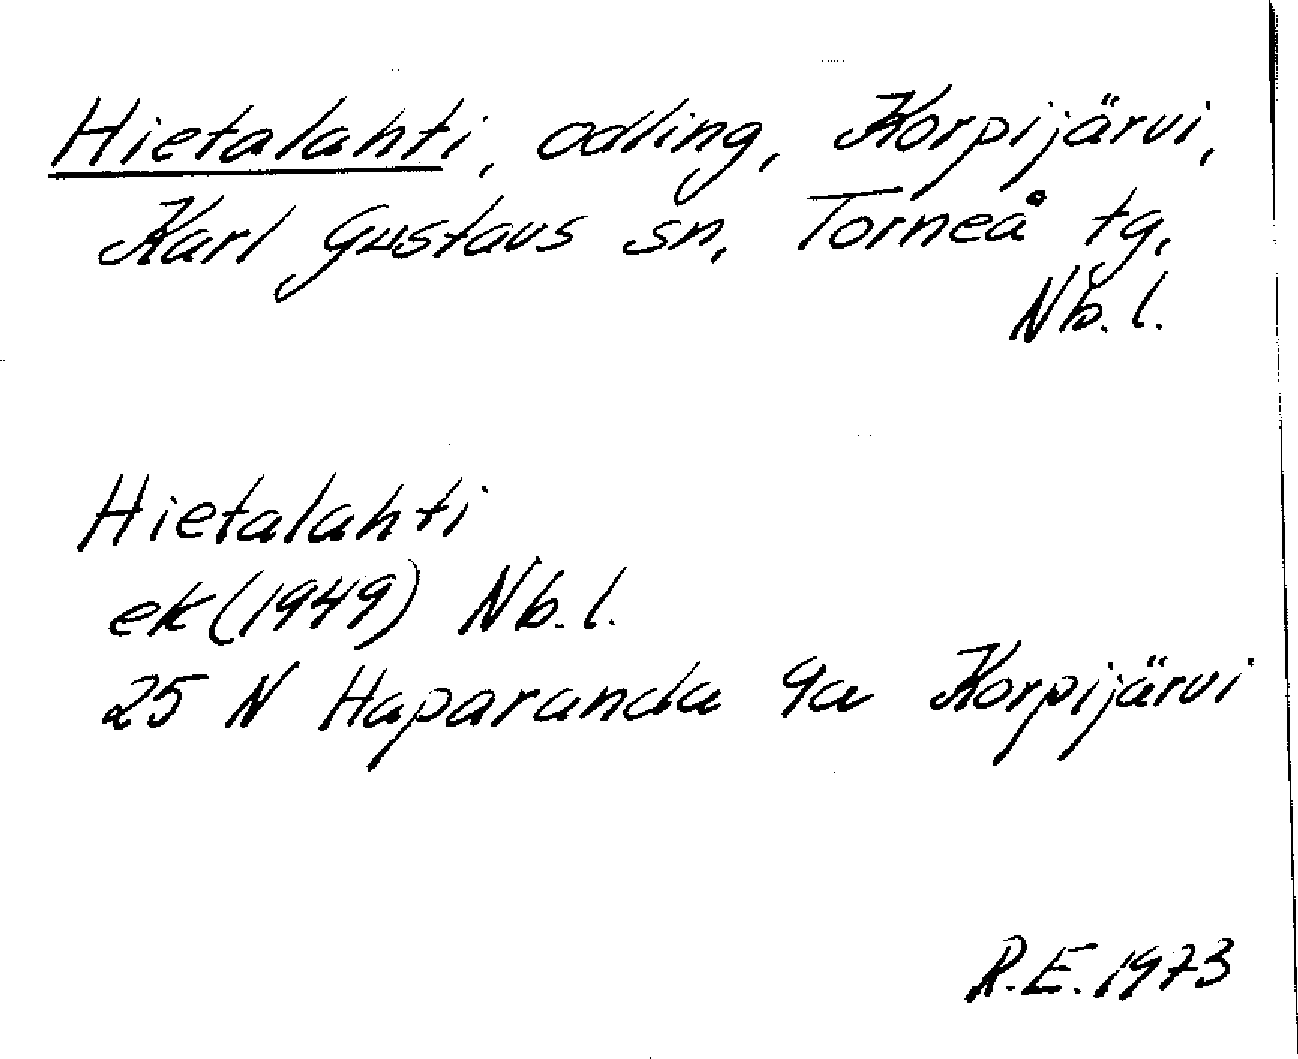 Hietalahti, odling, Korpijärvi,
Karl Gustavs sn, Torneå tg,
Nb. l.
Hietalahti
ek (1949) Nb. l.
25 N Haparanda 9a Korpijärvi
R.E. 1973